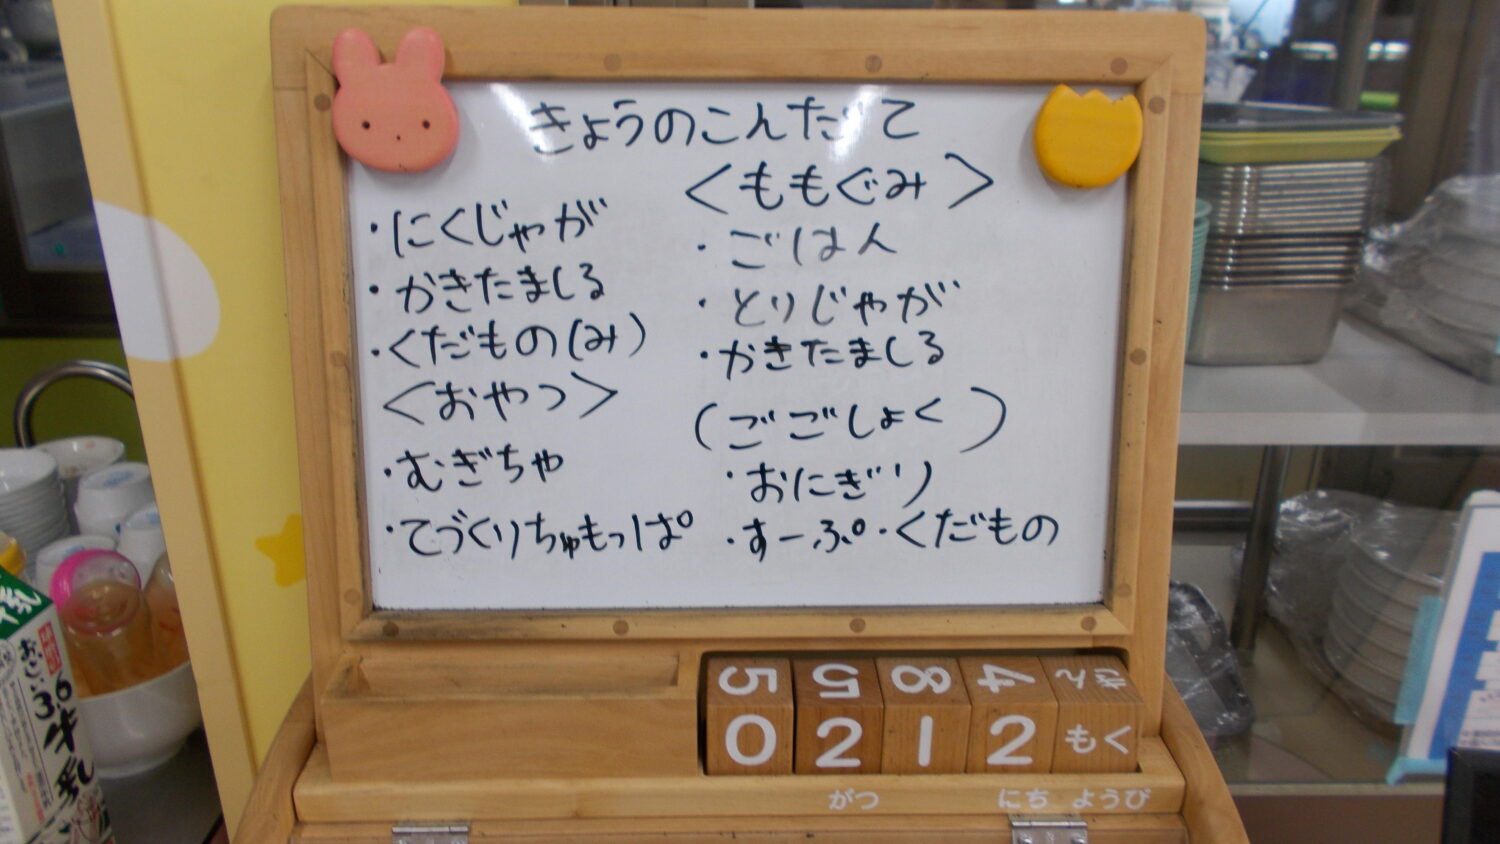 きょうのこんだて
・にくじゃが
・かきたましる
・くだもの(み)
<おやつ>
・むぎちゃ
・てづくりちゅもっぱ°
<ももぐみ>
・ごはん
・とりじゃが
・かきたましる
(ごごしょく)
・おにぎり
・すーぷ・くだもの
5 5 8 4 きん
0 2 1 2 もく
がつ にち ようび
おいしい
3.6牛乳